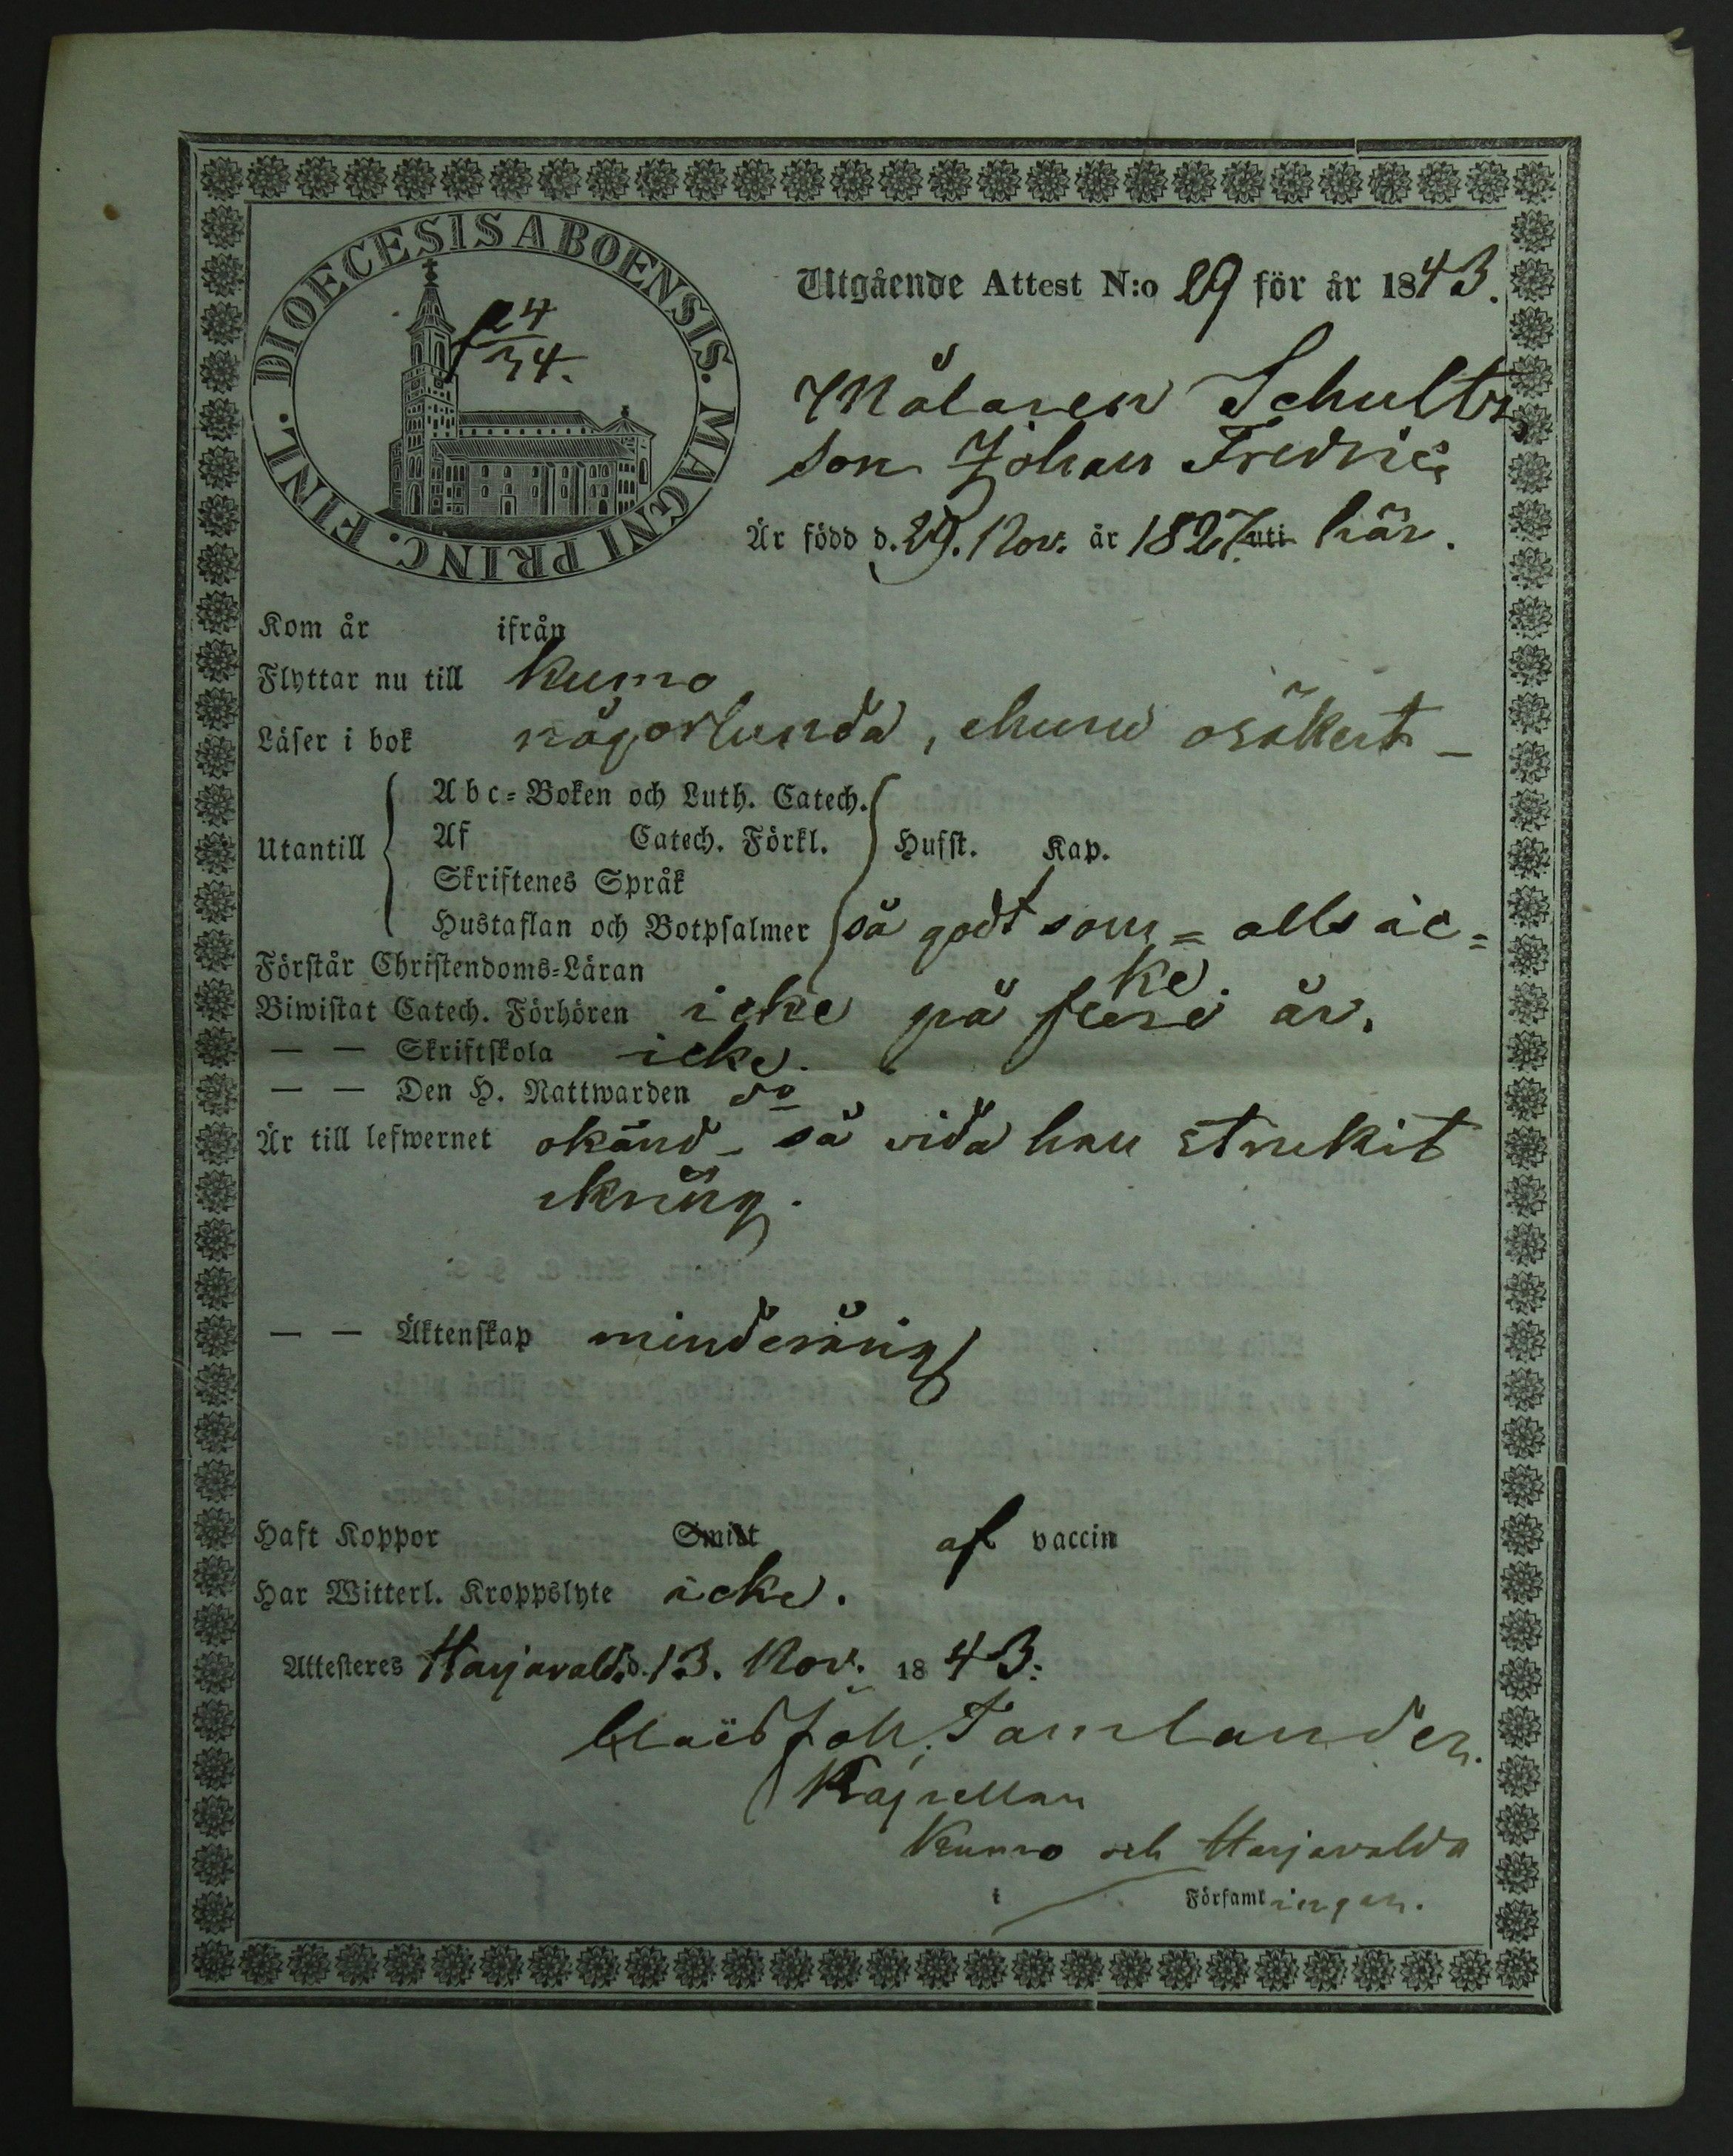 DIOECESIS ABOENSIS. MAGNI PRINC. FINL.
f 24
34.
Utgående Attest N:o 29 för år 1843.
Målaren Schultz
son Johan Fredric
Är född d. 29. Nov. år 1827. uti här.
Kom år ifrån
Flyttar nu till Kumo
Läser i bok någorlunda, ehuru osäkert –
Utantill
Abc-Boken och Luth. Catech.
Af Catech. Förkl.
Skriftenes Språk
Hustaflan och Botpsalmer
Husst. Kap.
så godt som = alls ic=
ke.
Förstår Christendoms-Läran
Biwistat Catech. Förhören icke på flere år.
— — Skriftskola icke.
— — Den H. Nattwarden do
Är till lefwernet okänd – så vida han strukit
ikring.
— — Äktenskap minderårig
Haft Koppor Smitt af vaccin
Har Witterl. Kroppslyte icke.
Attesteres Harjavald. d. 13. Nov. 1843.
Joh. Tamlander.
Kapellan
Kumo och Harjavalda
i Församlingar.